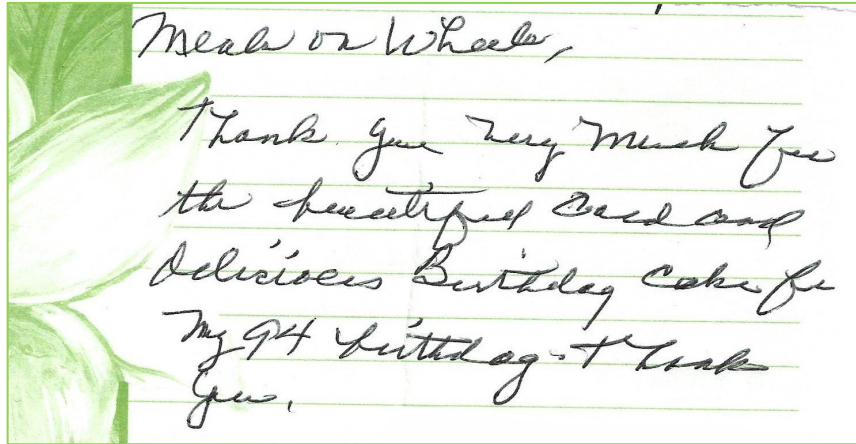 Meals on Wheels,
Thank you very much for
the beautiful card and
Delicious Birthday Cake for
my 94 birthday - Thank
you.